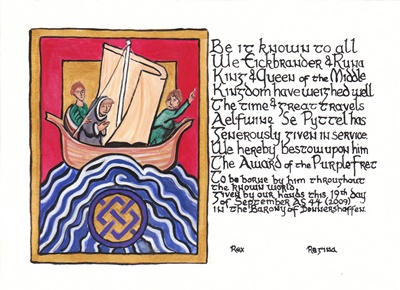 Be it known to all
We Eickbrander & Runa
King & Queen of the Middle
Kingdom have weighed well
The time & great travels
Aelfwine Se Pyttel has
Generously given in service.
We hereby bestow upon him
The Award of the Purple Fret
To be borne by him throughout
the known world.
Given by our hands this 19th day
of September AS 44 (2009)
in the Barony of Donnershafen.
Rex Regina